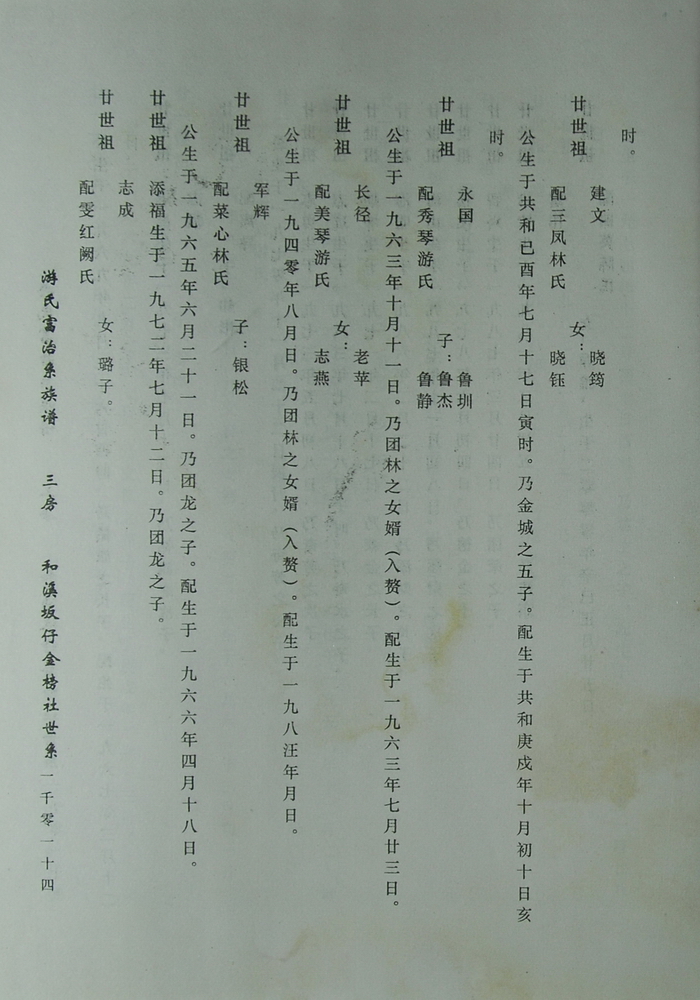 时。
建文 晓筠
廿世祖 配三凤林氏 女：晓钰
公生于共和己酉年七月十七日寅时。乃金城之五子。配生于共和庚戍年十月初十日亥
时。
永国 鲁圳
廿世祖 配秀琴游氏 子：鲁杰
鲁静
公生于一九六三年十月十一日。乃团林之女婿（入赘）。配生于一九六三年七月廿三日。
长径 老苹
廿世祖 配美琴游氏 女：志燕
公生于一九四零年八月日。乃团林之女婿（入赘）。配生于一九八汪年月日。
军辉
廿世祖 配菜心林氏 子：银松
公生于一九六五年六月二十一日。乃团龙之子。配生于一九六六年四月十八日。
廿世祖 添福生于一九七二年七月十二日。乃团龙之子。
志成
廿世祖 配雯红阙氏 女：璐子。
游氏富治系族谱 三房 和溪坂仔金榜社世系 一千零一十四